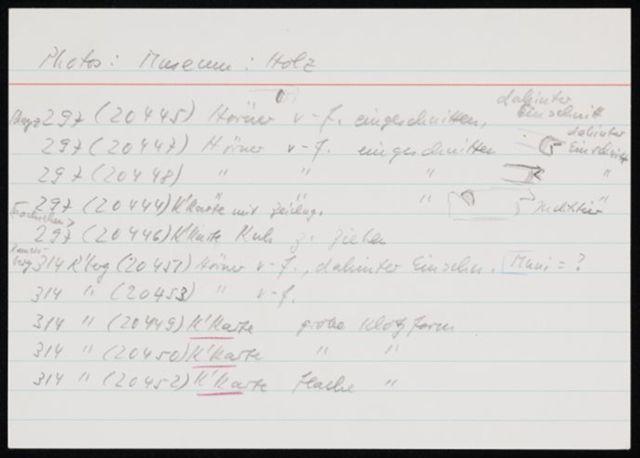 Photos: Museum: Holz
297 (20445) Hörner v-f. eingeschnitten, dahinter Einschnitt
297 (20447) Hörner v-f. eingeschnitten dahinter Einschnitt
297 (20448) " " " "
297 (20444) K'Karte mit Zeichng. "
297 (20446) K'Karte Kuh z. Ziehen
314 K'berg (20451) Hörner v-f., dahinter Einschn. Muni = ?
314 " (20453) " v-f.
314 " (20449) K'Karte grobe Klotzform
314 " (20450) K'Karte " "
314 " (20452) K'Karte flache "